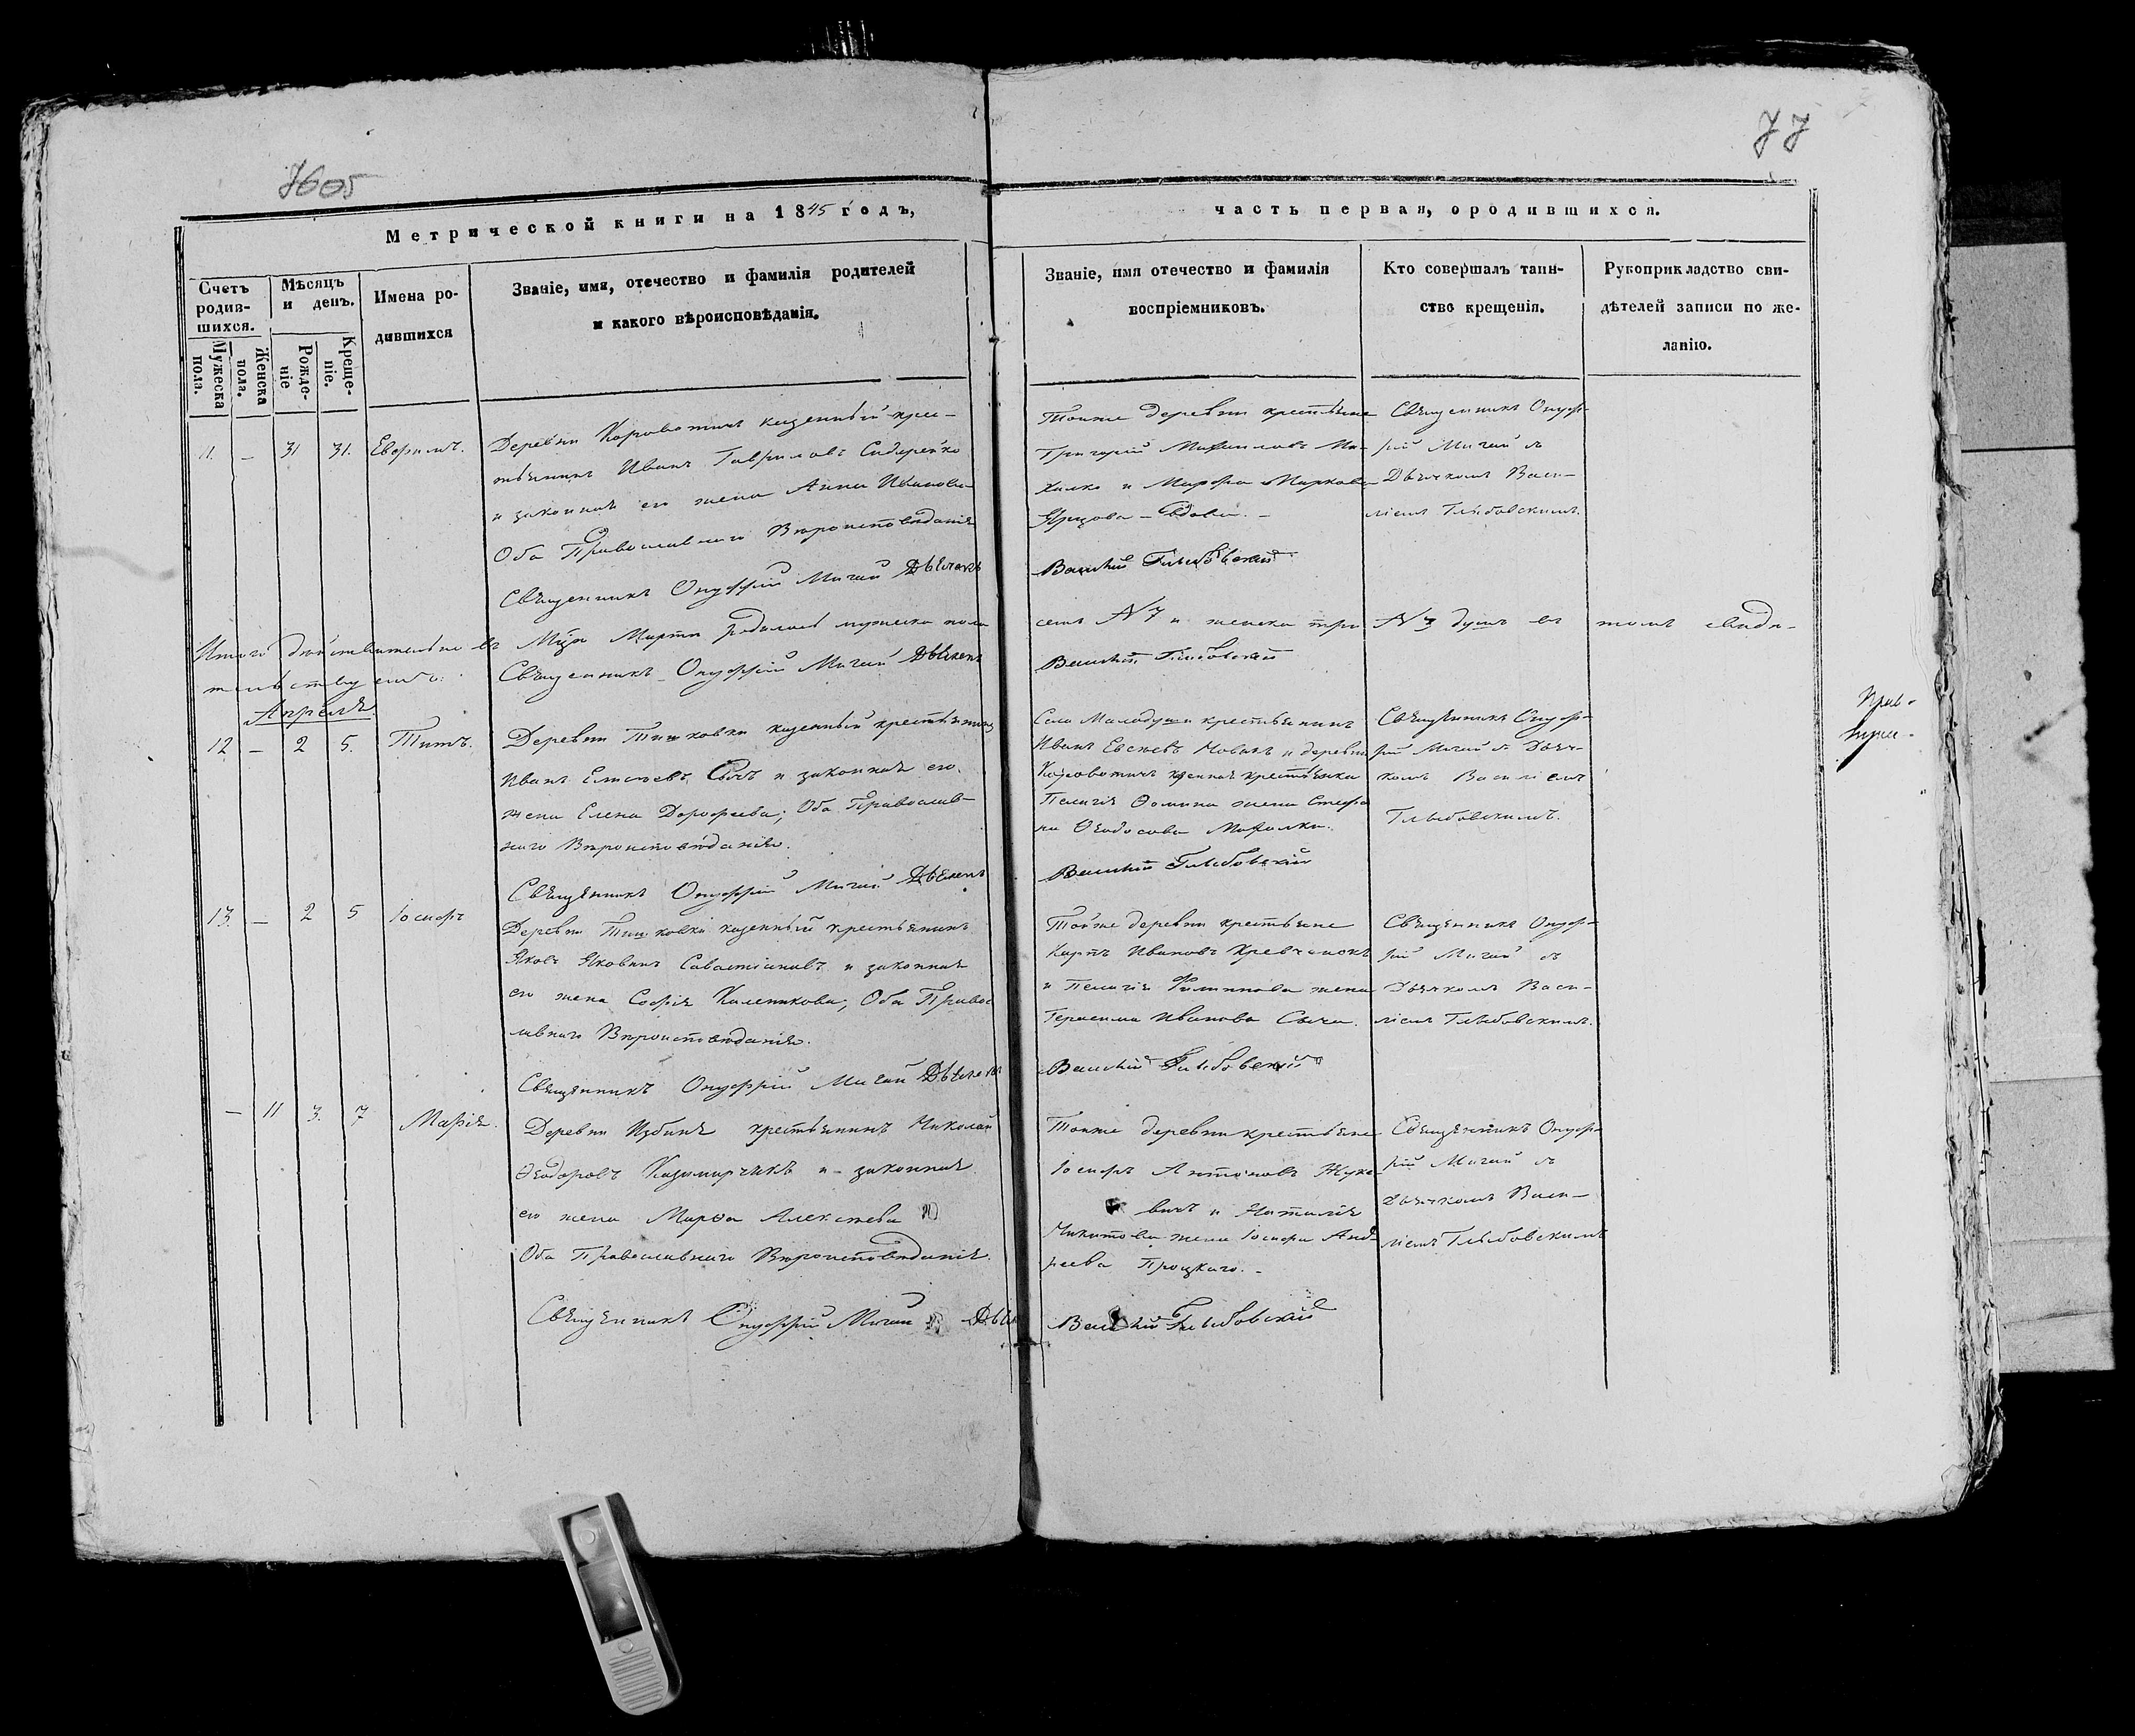 7605
77
Метрической книги на 1845 годъ,
часть первая, о родившихся.
Счетъ родив-шихся.
Мужеска пола.
Женска пола.
Мѣсяцъ и день.
Рожде-ніе
Креще-ніе.
Имена ро-
дившихся
Званіе, имя, отечество и фамилія родителей
и какого вѣроисповѣданія.
Званіе, имя отечество и фамилія
воспріемниковъ.
Кто совершалъ таин-
ство крещенія.
Рукоприкладство сви-
дѣтелей записи по же-
ланію.
11. — 31 31. Евфимъ.
Деревни Короватичъ казенный крес-
тьянинъ Иванъ Гавриловъ Сидорейко
и законная его жена Анна Иванова
Оба Православнаго Вѣроисповѣданія
Священникъ Онуфрій Мигай Дьячекъ
Тойже деревни крестьяне
Григорій Михаиловъ Ми-
халко и Марфа Маркова
вдова. —
Василій Глыбовскій
Священникъ Онуф-
рій Мигай съ
Дьячкомъ Васи-
ліемъ Глыбовскимъ.
Итого дѣйствительно въ Мцѣ Мартѣ родилось мужеска пола
семь № 7 и женска три № 3 душъ въ томъ свидѣ-
тельствуемъ:
Священникъ Онуфрій Мигай Дьячекъ
Василій Глыбовскій
Апрель
12 — 2 5. Титъ.
Деревни Тишковки казенный крестьянинъ
Иванъ Елисѣевъ Сычъ и законная его
жена Елена Дорофеева; Оба Православ-
наго Вѣроисповѣданія.
Священникъ Онуфрій Мигай Дьячекъ
Села Малодуши крестьянинъ
Иванъ Евсѣевъ Новакъ и деревни
Короватичъ казенная крестьянка
Пелагія Ѳомина жена Стефа
на Ѳеодосова Михалки.
Василій Глыбовскій
Священникъ Онуф-
рій Мигай съ Дьяч-
комъ Василіемъ
Глыбовскимъ.
13. — 2 5 Іосифъ
Деревни Тишковки казенный крестьянинъ
Яковъ Яковлевъ и законная
его жена Софія Каленикова, Оба Правос
лавнаго Вѣроисповѣданія.
Священникъ Онуфрій Мигай Дьячекъ
Тойже деревни крестьяне
Карпъ Ивановъ
и Пелагія Филиппова жена
Герасима Иванова Сыча.
Василій Глыбовскій
Священникъ Онуф-
рій Мигай съ
Дьячкомъ Васи-
ліемъ Глыбовскимъ.
— 11 3. 7 Марія.
Деревни Избинъ крестьянинъ Николай
Ѳеодоровъ Казимирчикъ и законная
его жена Марѳа Алексѣева
Оба Православнаго Вѣроисповѣданія.
Священникъ Онуфрій Мигай Дьяч
Тойже деревни крестьяне
Іосифъ Антоновъ Жуке
вичъ и Наталія
Никитова жена Іосифа Анд-
реева Процкаго. —
Василій Глыбовскій
Священникъ Онуф-
рій Мигай съ
Дьячкомъ Васи-
ліемъ Глыбовскимъ